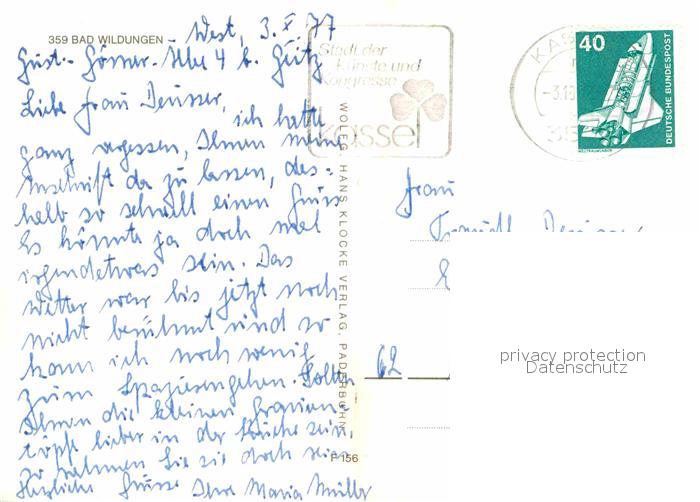 359 BAD WILDUNGEN
West, 3. X 77
Gust.- 4 b. Götz
Liebe Frau Deusser,
ich hatte
ganz vergessen, Ihnen meine
Anschrift da zu lassen, des-
halb so schnell einen Gruss
Es könnte ja doch mal
irgendetwas sein. Das
Wetter war bis jetzt noch
nicht berühmt und so
kann ich noch wenig
zum Spazierengehen. Sollten
Ihnen die kleinen
töpfe lieber in der Küche sein,
so nehmen Sie sie doch
Herzliche Grüsse Ihre Maria Müller
Stadt der
Künste und
Kongresse
kassel
WOLFG. HANS KLOCKE VERLAG, PADERBORN
P 156
40
DEUTSCHE BUNDESPOST
WELTRAUMLABOR
Frau
Deusser
62
privacy protection
Datenschutz